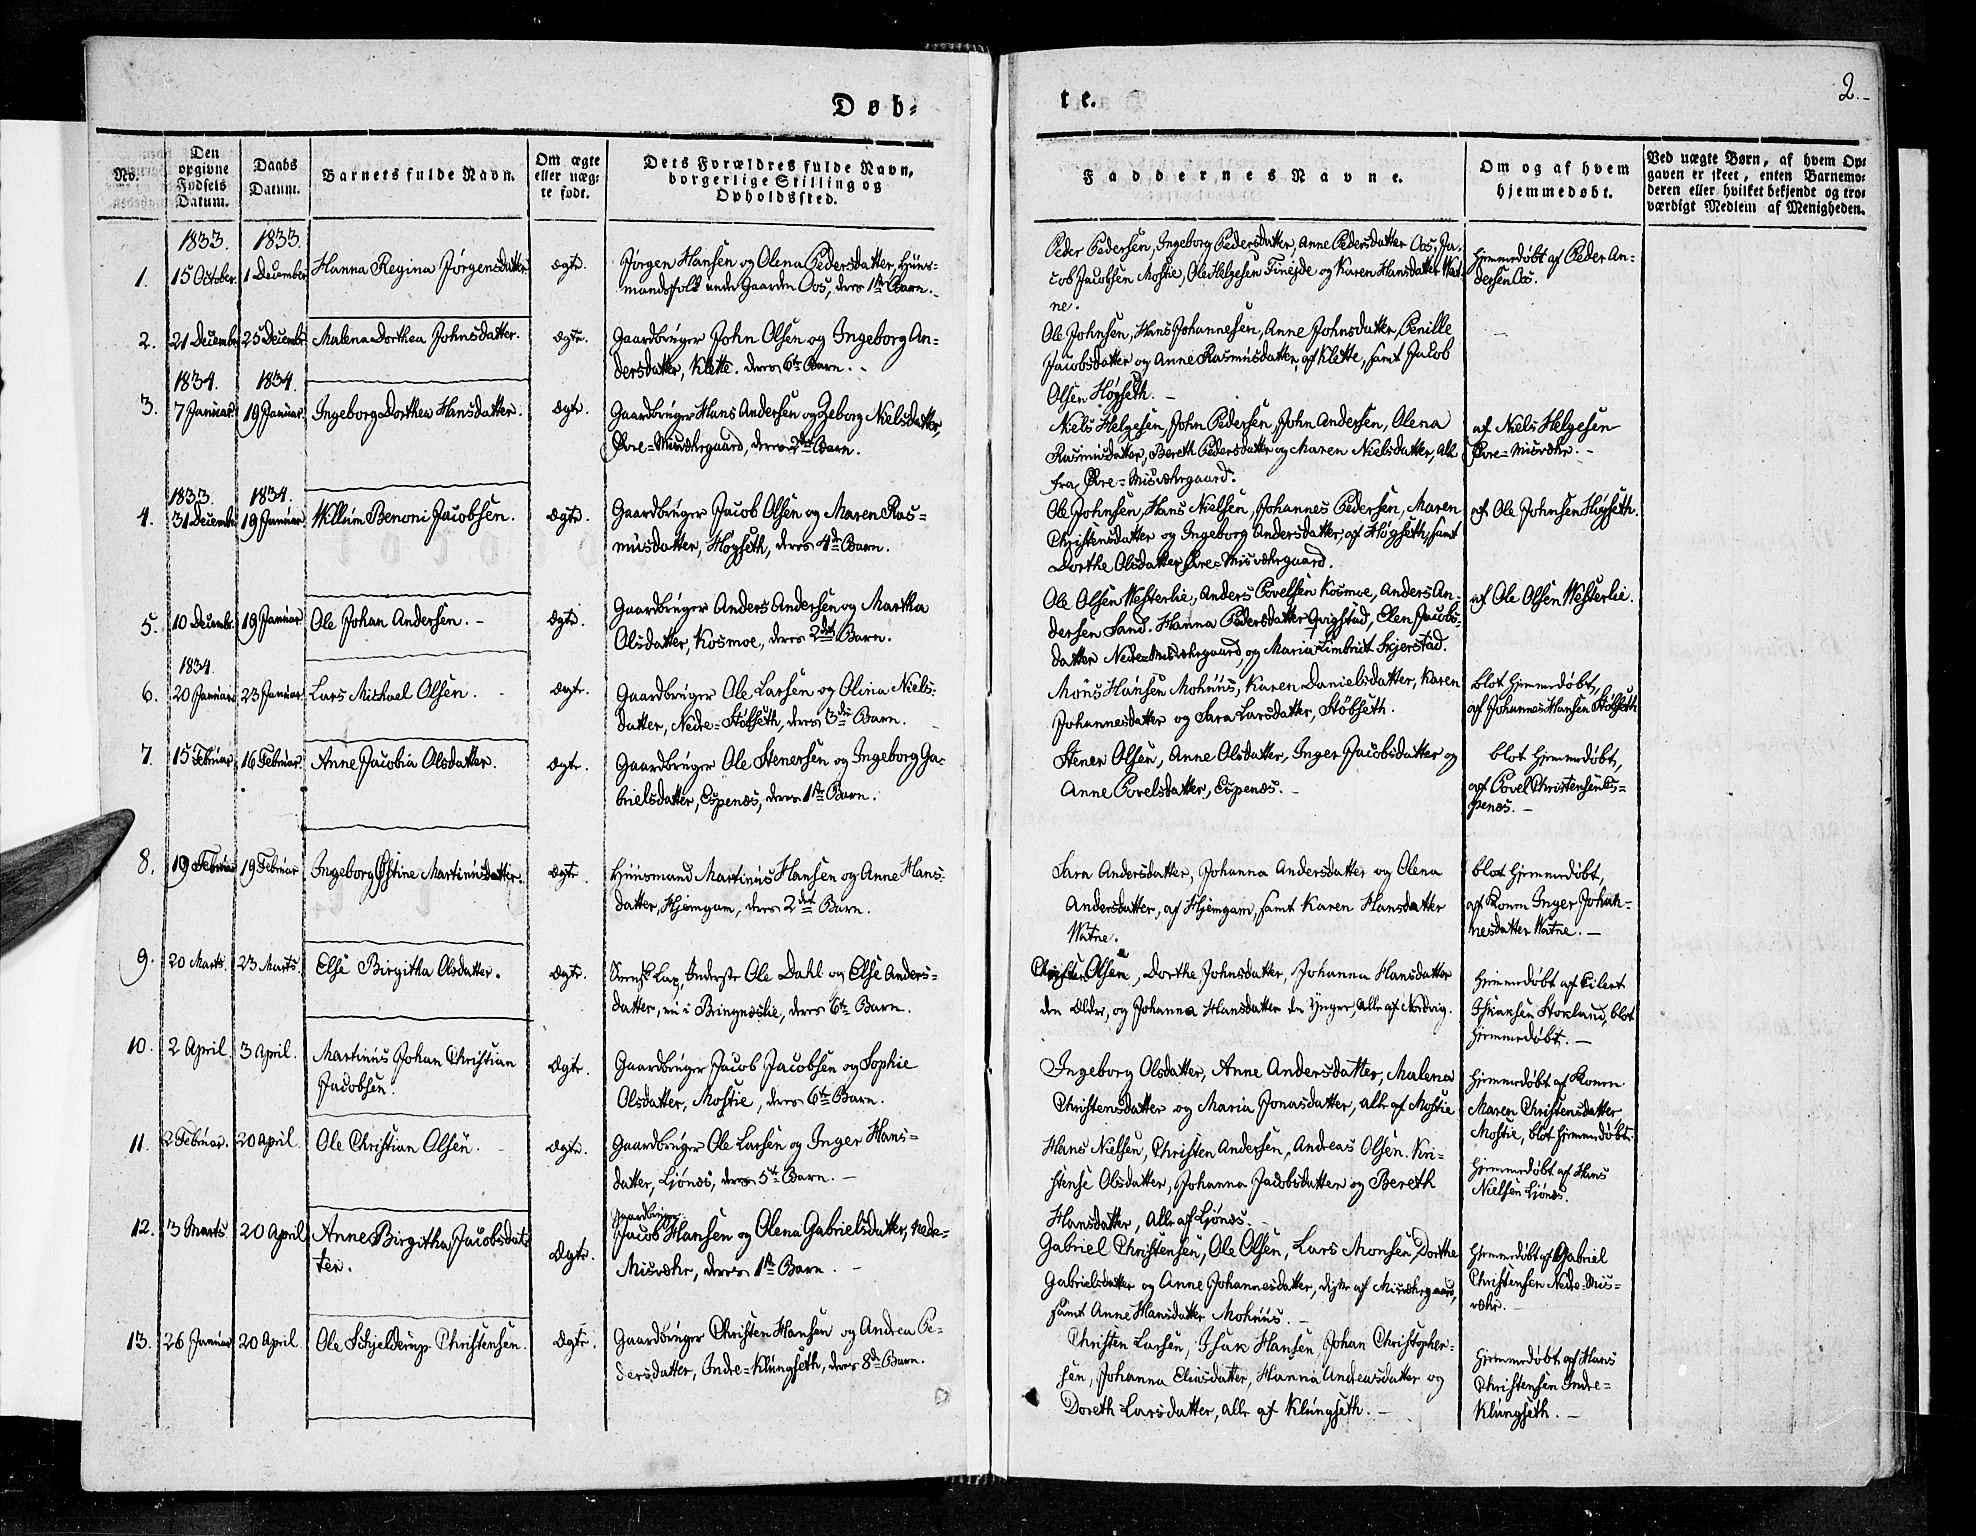 Døb-
te.
2.
No.
Den
opgivne
Fødsels
Datum.
Daabs
Datum.
Barnets fulde Navn.
Om ægte
eller uæg-
te født.
Dets Forældres fulde Navn,
borgerlige Stilling og
Opholdssted.
Faddernes Navne.
Om og af hvem
hjemmedøbt.
Ved uægte Børn, af hvem Op-
gaven er skeet, enten Barnemo-
deren eller hvilket bekjendt og tro-
værdigt Medlem af Menigheden.
1833. 1833.
1. 15 October 1 December Hanna Regina Jørgensdatter ægte.
Jørgen Hansen og Olena Pedersdatter, Huus-
mandsfolk under Gaarden Oos, deres 1ste Barn.
Peder Pedersen, Ingeborg Pedersdatter, Anne Pedersdatter Oos, Ja-
cob Jacobsen Mostie, Ole Helgesen Finejde og Karen Hansdatter Wat-
ne.
Hjemmedøbt af Peder An-
dersen Oos.
2. 21 Decembr 25 Decembr Malena Dorthea Johnsdatter. ægte.
Gaardbruger John Olsen og Ingeborg An-
dersdatter, Klette. deres 6te Barn.
Ole Johnsen, Hans Johannesen, Anne Johnsdatter, Penille
Jacobsdatter og Anne Rasmusdatter, af Klette, samt Jacob
Olsen Høgseth.
1834. 1834.
3. 7 Januar 19 Januar Ingeborg Dorthea Hansdatter. ægte.
Gaardbruger Hans Andersen og Zeborg Nielsdatter,
Øvre-Misværgaard, deres 2det Barn.
Niels Helgesen, John Pedersen, John Andersen, Olena
Rasmusdatter, Bereth Pedersdatter og Maren Nielsdatter, alle
fra Øvre-Misværgaard.
af Niels Helgesen
Øvre-Misvæhr.
1833. 1834.
4. 31 Decembr 19 Januar Willum Benoni Jacobsen. ægte.
Gaardbruger Jacob Olsen og Maren Ras-
musdatter, Høgseth, deres 4de Barn.
Ole Johnsen, Hans Nielsen, Johannes Pedersen, Maren
Christensdatter og Ingeborg Andersdatter, af Høgseth, samt
Dorthe Olsdatter Øvre-Misværgaard.
af Ole Johnsen Høgseth.
5. 10 Decembr. 19 Januar Ole Johan Andersen. ægte.
Gaardbruger Anders Andersen og Martha
Olsdatter, Kosmoe, deres 2det Barn.
Ole Olsen Westerlie, Anders Povelsen Kosmoe, Anders An-
dersen Sand. Hanna Pedersdatter Qvigstad, Elen Jacobs-
datter Nedre-Misværgaard, og Maria Limbrut Skjerstad.
af Ole Olsen Westerlie.
1834.
6. 20 Januar 23 Januar Lars Michael Olsen. ægte.
Gaardbruger Ole Larsen og Olina Niels-
datter, Nedre-Støbseth, deres 3de Barn.
Mons Hansen Mohuus, Karen Danielsdatter, Karen
Johannesdatter og Sara Larsdatter, Støbseth.
blot hjemmedøbt,
af Johannes Hansen Støbseth
7. 15 Februar 16 Februar Anne Jacobia Olsdatter. ægte.
Gaardbruger Ole Stenersen og Ingeborg Ga-
brielsdatter, Espenæs, deres 1ste Barn.
Stener Olsen, Anne Olsdatter, Inger Jacobsdatter og
Anne Povelsdatter, Espenæs.
blot hjemmedøbt,
af Povel Christensen Es-
penæs.
8. 19 Februar 19 Februar Ingeborg Østine Martinusdatter. ægte.
Huusmand Martinus Hansen og Anne Hans-
datter, Hjemgam, deres 2det Barn.
Sara Andersdatter, Johanna Andersdatter og Olena
Andersdatter, af Hjemgam, samt Karen Hansdatter
Watne.
blot hjemmedøbt,
af Konen Inger Johan-
nesdatter Watne.
9. 20 Marts. 23 Marts Else Birgitha Olsdatter. ægte.
Svensk Lap, Inderst Ole Dahl og Else Anders-
datter, nu i Bringnæslie, deres 6te Barn.
Christen Olsen, Dorthe Johnsdatter, Johanna Hansdatter
den Ældre, og Johanna Hansdatter den Yngre, alle af Nordvig.
Hjemmedøbt af Eilert
Isaksen Stokland, blot
hjemmedøbt.
10. 2 April 3 April. Martinus Johan Christian
Jacobsen. Ægte.
Gaardbruger Jacob Jacobsen og Sophie
Olsdatter, Mostie, deres 6te Barn.
Ingeborg Olsdatter, Anne Andersdatter, Malena
Christensdatter og Maria Jonasdatter, alle af Mostie
Hjemmedøbt af Konen
Maren Christensdatter
Mostie, blot hjemmedøbt.
11. 2 Februar. 20 April Ole Christian Olsen. Ægte.
Gaardbruger Ole Larsen og Inger Hans-
datter, Ljønæs, deres 5te Barn.
Hans Nielsen, Christen Andersen, Andreas Olsen. Kri-
stense Olsdatter, Johanna Jacobsdatter og Bereth
Hansdatter, alle af Ljønæs.
Hjemmedøbt af Hans
Nielsen Ljønæs.
12. 3 Marts 20 April Anne Birgitha Jacobsdat-
ter. Ægte.
Gaardbruger
Jacob Hansen og Olena Gabrielsdatter, Nedre-
Misvæhr, deres 1ste Barn.
Gabriel Christensen, Ole Olsen, Lars Monsen, Dorthe
Gabrielsdatter og Anne Johannesdatter, disse af Misværgaard,
samt Anne Hansdatter Mohuus.
Hjemmedøbt af Gabriel
Christensen Nedre-Mis-
væhr.
13. 26 Januar 20 April Ole Schjelderup Christensen. Ægte.
Gaardbruger Christen Hansen og Andrea Pe-
dersdatter, Indre-Klungseth, deres 8de Barn.
Christen Larsen, Isak Hansen, Johan Christopher-
sen, Johanna Eliasdatter, Hanna Andreasdatter og
Doreth Larsdatter, alle af Klungseth.
Hjemmedøbt af Hans
Christensen Indre-
Klungseth.